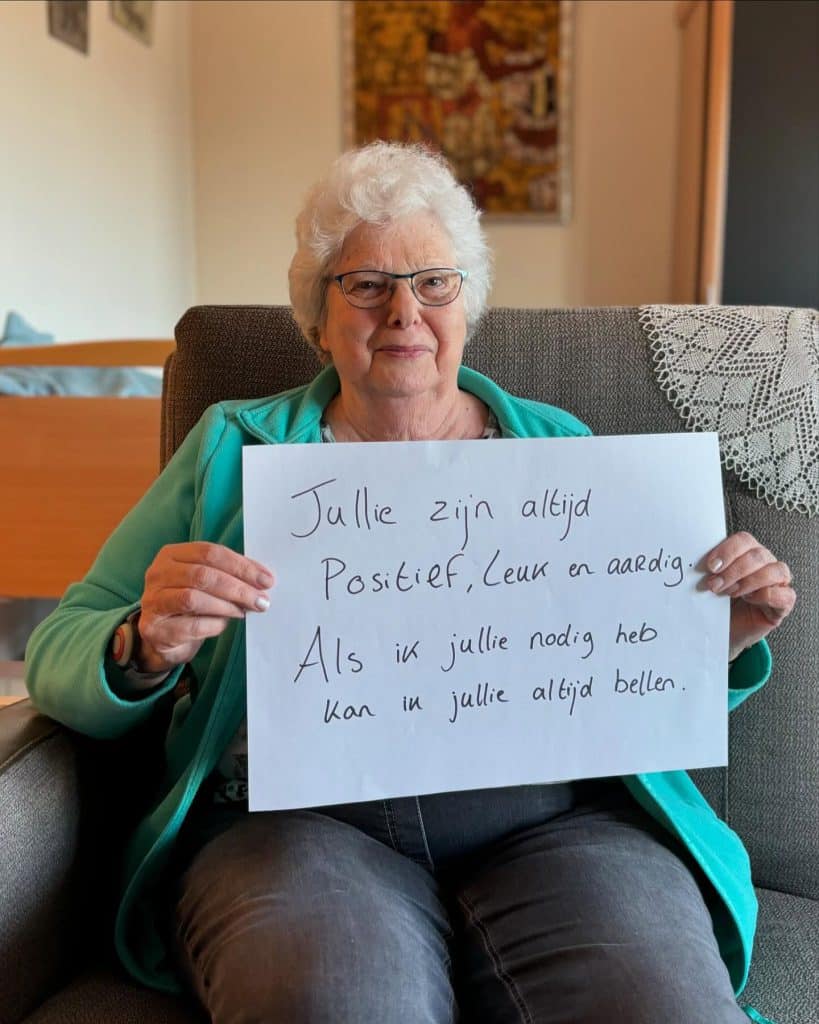 Jullie zijn altijd
Positief, Leuk en aardig.
Als ik jullie nodig heb
kan ik jullie altijd bellen.